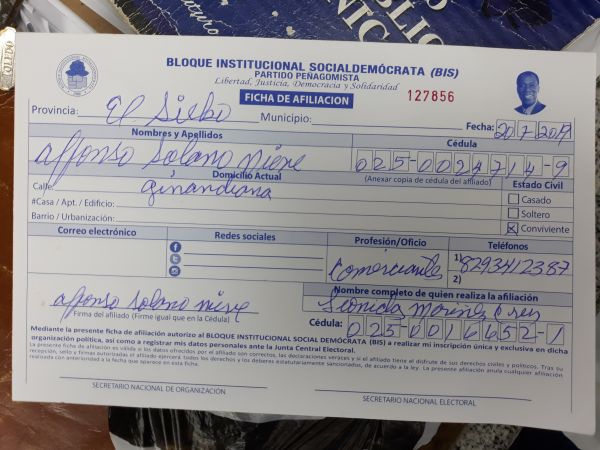 BLOQUE INSTITUCIONAL SOCIALDEMÓCRATA (BIS)
PARTIDO PEÑAGOMISTA
Libertad, Justicia, Democracia y Solidaridad
FICHA DE AFILIACION
127856
Provincia: El Seibo Municipio: Fecha: 20 7 2019
Nombres y Apellidos Cédula
affonso Solano niere 025-0024714-9
Domicilio Actual (Anexar copia de cédula del afiliado) Estado Civil
Calle: ginandiana Casado
#Casa / Apt. / Edificio: Soltero
Barrio / Urbanización: Conviviente
Correo electrónico Redes sociales Profesión/Oficio Teléfonos
comerciante 1) 8293412387
2)
Nombre completo de quien realiza la afiliación
affonso solano niere
Firma del afiliado (Firme igual que en la Cédula) Cédula: 025-0016652-1
Mediante la presente ficha de afiliación autorizo al BLOQUE INSTITUCIONAL SOCIAL DEMÓCRATA (BIS) a realizar mi inscripción única y exclusiva en dicha
organización política, así como a registrar mis datos personales ante la Junta Central Electoral.
La presente ficha de afiliación es válida si los datos ofrecidos por el afiliado son correctos, las declaraciones veraces y si el afiliado tiene el disfrute de sus derechos civiles y políticos. Tras su
recepción, sello y firmas autorizadas el afiliado ejercerá todos los derechos y los deberes estatutariamente sancionados, de acuerdo a la ley. La presente afiliación anula cualquier afiliación
realizada con anterioridad a la fecha que aparece en esta ficha.
SECRETARIO NACIONAL DE ORGANIZACIÓN
SECRETARIO NACIONAL ELECTORAL